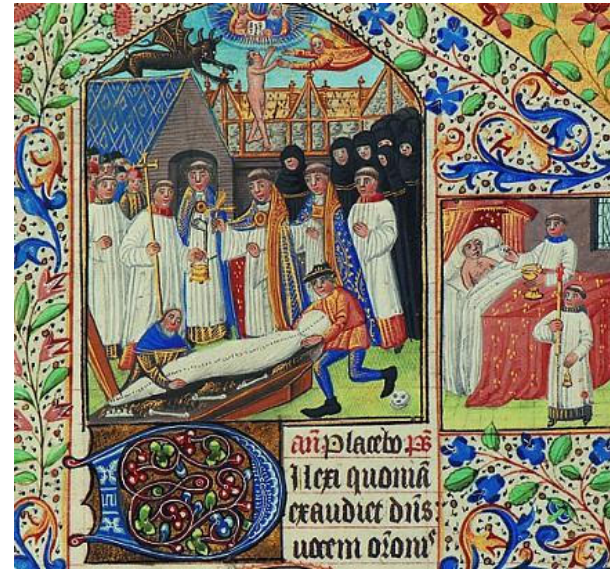 añ Placebo p̃s
DIlexi quoniã
exaudiet dñs
uocem or̃oniˢ